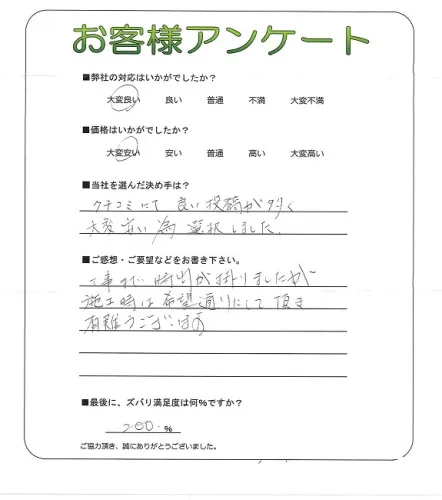 お客様アンケート
■弊社の対応はいかがでしたか?
大変良い 良い 普通 不満 大変不満
■価格はいかがでしたか?
大変安い 安い 普通 高い 大変高い
■当社を選んだ決め手は?
クチコミにて 良い 投稿が多く
大変安い為 選択しました。
■ご感想・ご要望などをお書き下さい。
工事まで 時間が掛りましたが
施工時は希望通りにして頂き
有難うござい
■最後に、ズバリ満足度は何%ですか?
200.%
ご協力頂き、誠にありがとうございました。